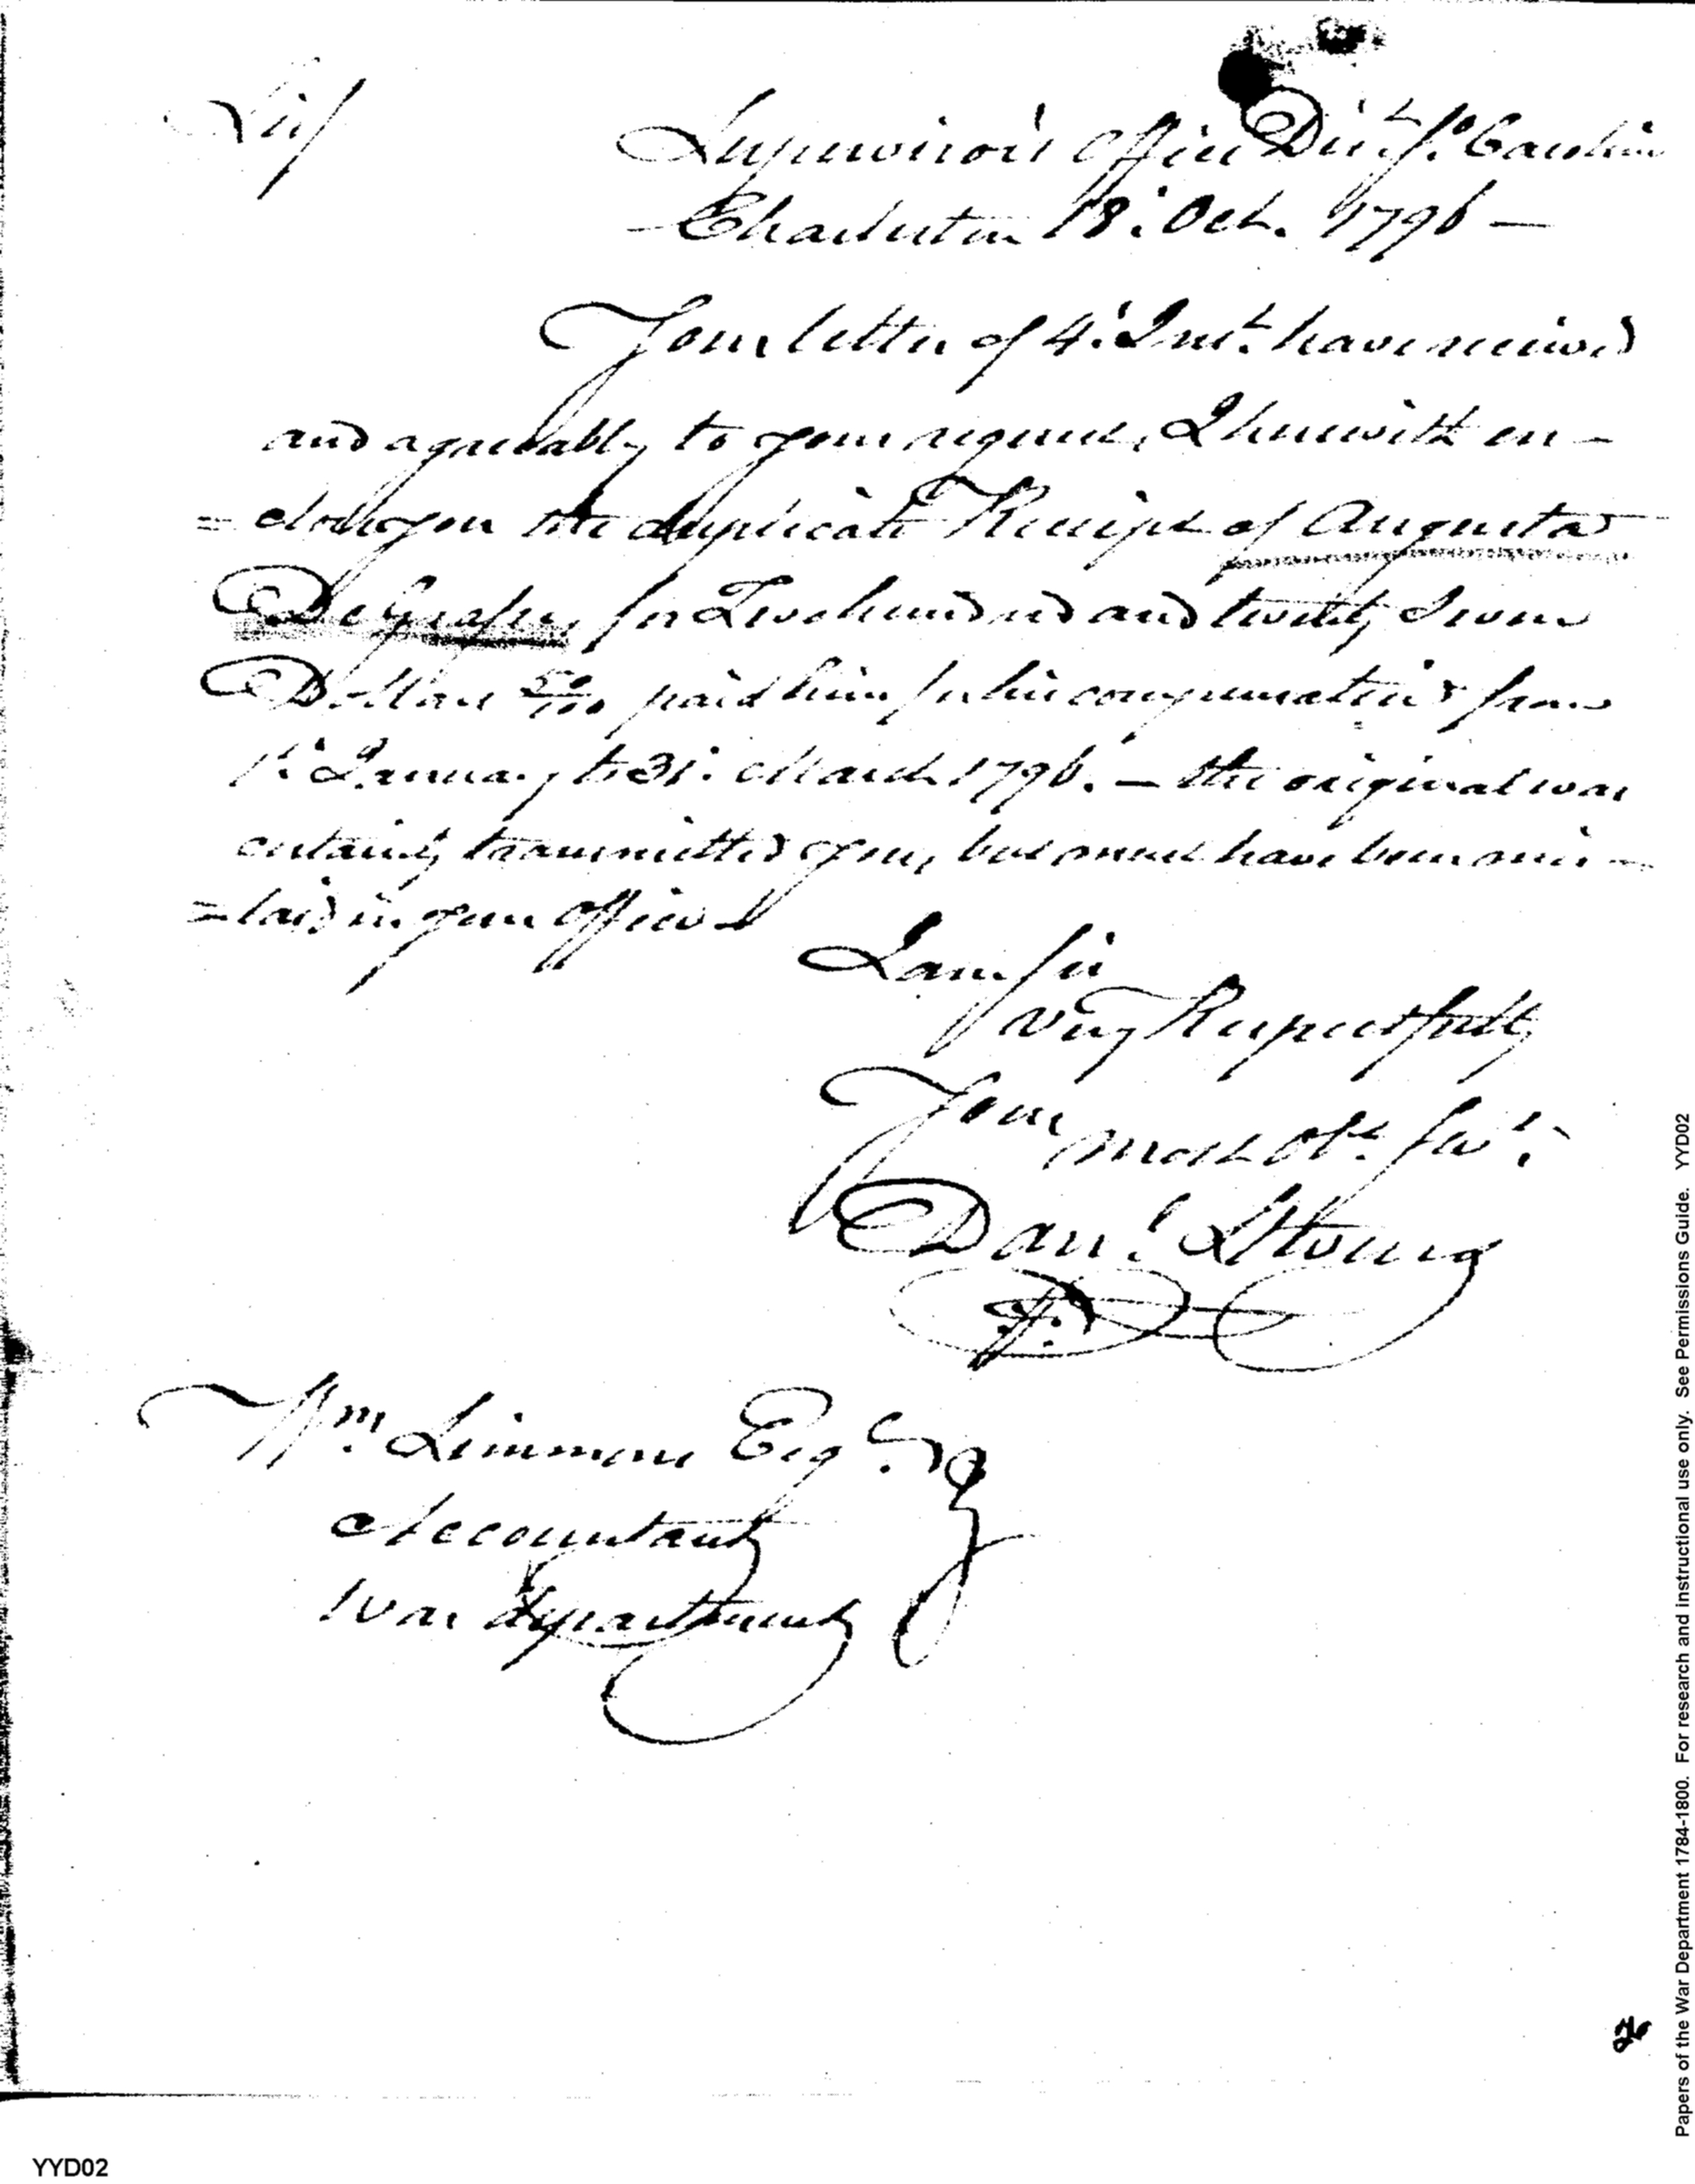 Sir/
Supervisor's Office Dist. So. Carolina
Charleston 18. Oct. 1796 —
Your letter of 4. Inst. have received
and agreeably to your request, I herewith en-
=close you the duplicate Receipt of Augusta
for Two hundred and twenty Seven
Dollars 50/100 paid him for his compensation from
1st January to 31. March 1796. — the original was
certainly transmitted you, but must have been mis-
=laid in your office
I am Sir
Very Respectfully
Your
most Obt. Servt.
Danl. Stevens
Wm. Simmons Esqr.
Accountant
War department
26
YYD02
Papers of the War Department 1784-1800. For research and instructional use only. See Permissions Guide. YYD02